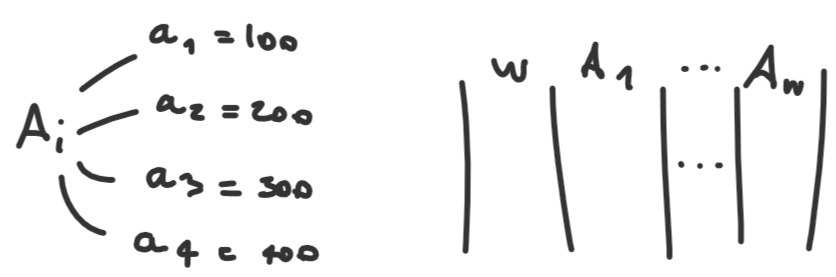 a₁ = 100
a₂ = 200
Aᵢ
a₃ = 300
a₄ = 400
w A₁ ... A_w
...